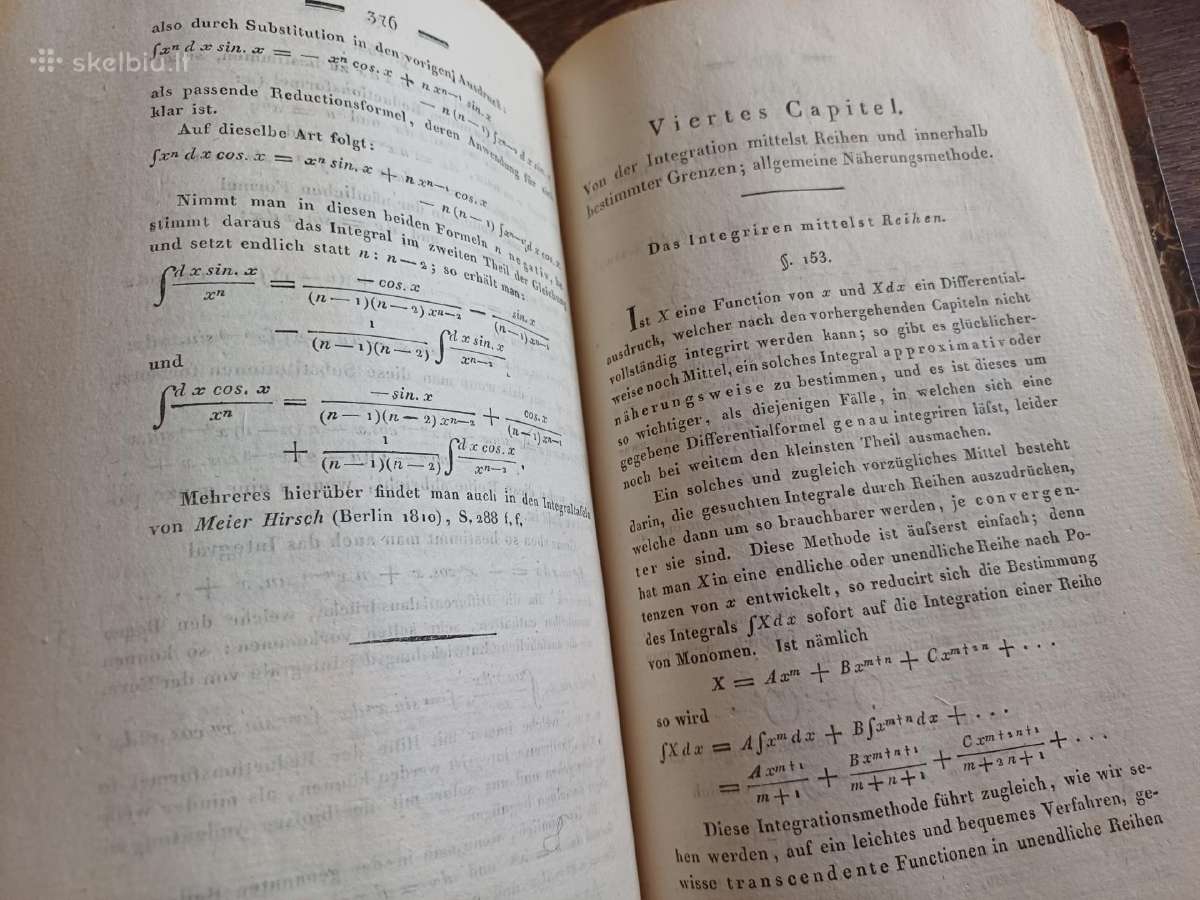 skelbiu.lt
376
also durch Substitution in den vorigen Ausdruck:
∫xⁿ d x sin. x = — xⁿ cos. x + n xⁿ⁻¹ sin. x
— n (n — 1) ∫xⁿ⁻² d x sin. x
als passende Reductionsformel, deren Anwendung für sich
klar ist.
Auf dieselbe Art folgt:
∫xⁿ d x cos. x = xⁿ sin. x + n xⁿ⁻¹ cos. x
— n (n — 1) ∫xⁿ⁻² d x cos. x
Nimmt man in diesen beiden Formeln n negativ, be-
stimmt daraus das Integral im zweiten Theil der Gleichung
und setzt endlich statt n: n — 2; so erhält man:
∫ d x sin. x / xⁿ = — cos. x / (n — 1)(n — 2) xⁿ⁻² — sin. x / (n — 1) xⁿ⁻¹
— 1 / (n — 1)(n — 2) ∫ d x sin. x / xⁿ⁻²,
und
∫ d x cos. x / xⁿ = — sin. x / (n — 1)(n — 2) xⁿ⁻² + cos. x / (n — 1) xⁿ⁻¹
+ 1 / (n — 1)(n — 2) ∫ d x cos. x / xⁿ⁻².
Mehreres hierüber findet man auch in den Integraltafeln
von Meier Hirsch (Berlin 1810), S. 288 f. f.
Viertes Capitel.
Von der Integration mittelst Reihen und innerhalb
bestimmter Grenzen; allgemeine Näherungsmethode.
Das Integriren mittelst Reihen.
§. 153.
Ist X eine Function von x und X d x ein Differential-
ausdruck, welcher nach den vorhergehenden Capiteln nicht
vollständig integrirt werden kann; so gibt es glücklicher-
weise noch Mittel, ein solches Integral approximativ oder
näherungsweise zu bestimmen, und es ist dieses um
so wichtiger, als diejenigen Fälle, in welchen sich eine
gegebene Differentialformel genau integriren läfst, leider
noch bei weitem den kleinsten Theil ausmachen.
Ein solches und zugleich vorzügliches Mittel besteht
darin, die gesuchten Integrale durch Reihen auszudrücken,
welche dann um so brauchbarer werden, je convergen-
ter sie sind. Diese Methode ist äufserst einfach; denn
hat man X in eine endliche oder unendliche Reihe nach Po-
tenzen von x entwickelt, so reducirt sich die Bestimmung
des Integrals ∫X d x sofort auf die Integration einer Reihe
von Monomen. Ist nämlich
X = A xᵐ + B xᵐ⁺ⁿ + C xᵐ⁺²ⁿ + . . .
so wird
∫X d x = A∫xᵐ d x + B∫xᵐ⁺ⁿ d x + . . .
= A xᵐ⁺¹ / m + 1 + B xᵐ⁺ⁿ⁺¹ / m + n + 1 + C xᵐ⁺²ⁿ⁺¹ / m + 2n + 1 + . . .
Diese Integrationsmethode führt zugleich, wie wir se-
hen werden, auf ein leichtes und bequemes Verfahren, ge-
wisse transcendente Functionen in unendliche Reihen